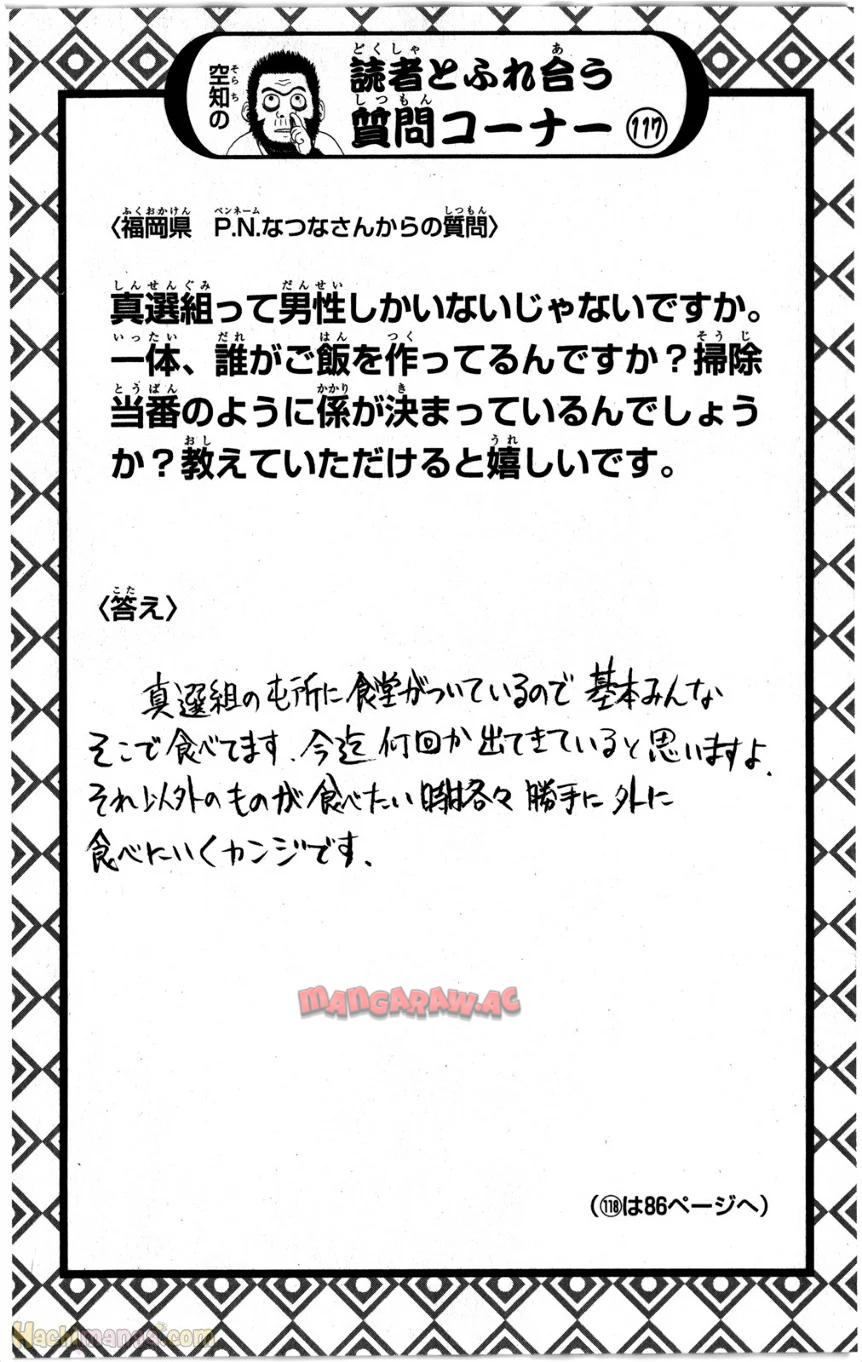 空知の
読者とふれ合う
質問コーナー 117
〈福岡県 P.N.なつなさんからの質問〉
真選組って男性しかいないじゃないですか。
一体、誰がご飯を作ってるんですか？掃除
当番のように係が決まっているんでしょう
か？教えていただけると嬉しいです。
〈答え〉
真選組の屯所に食堂がついているので基本みんな
そこで食べてます、今迄何回か出てきていると思いますよ、
それ以外のものが食べたい時は各々勝手に外に
食べにいくカンジです、
MANGARAW.AC
（118は86ページへ）
Hachimanasi.com